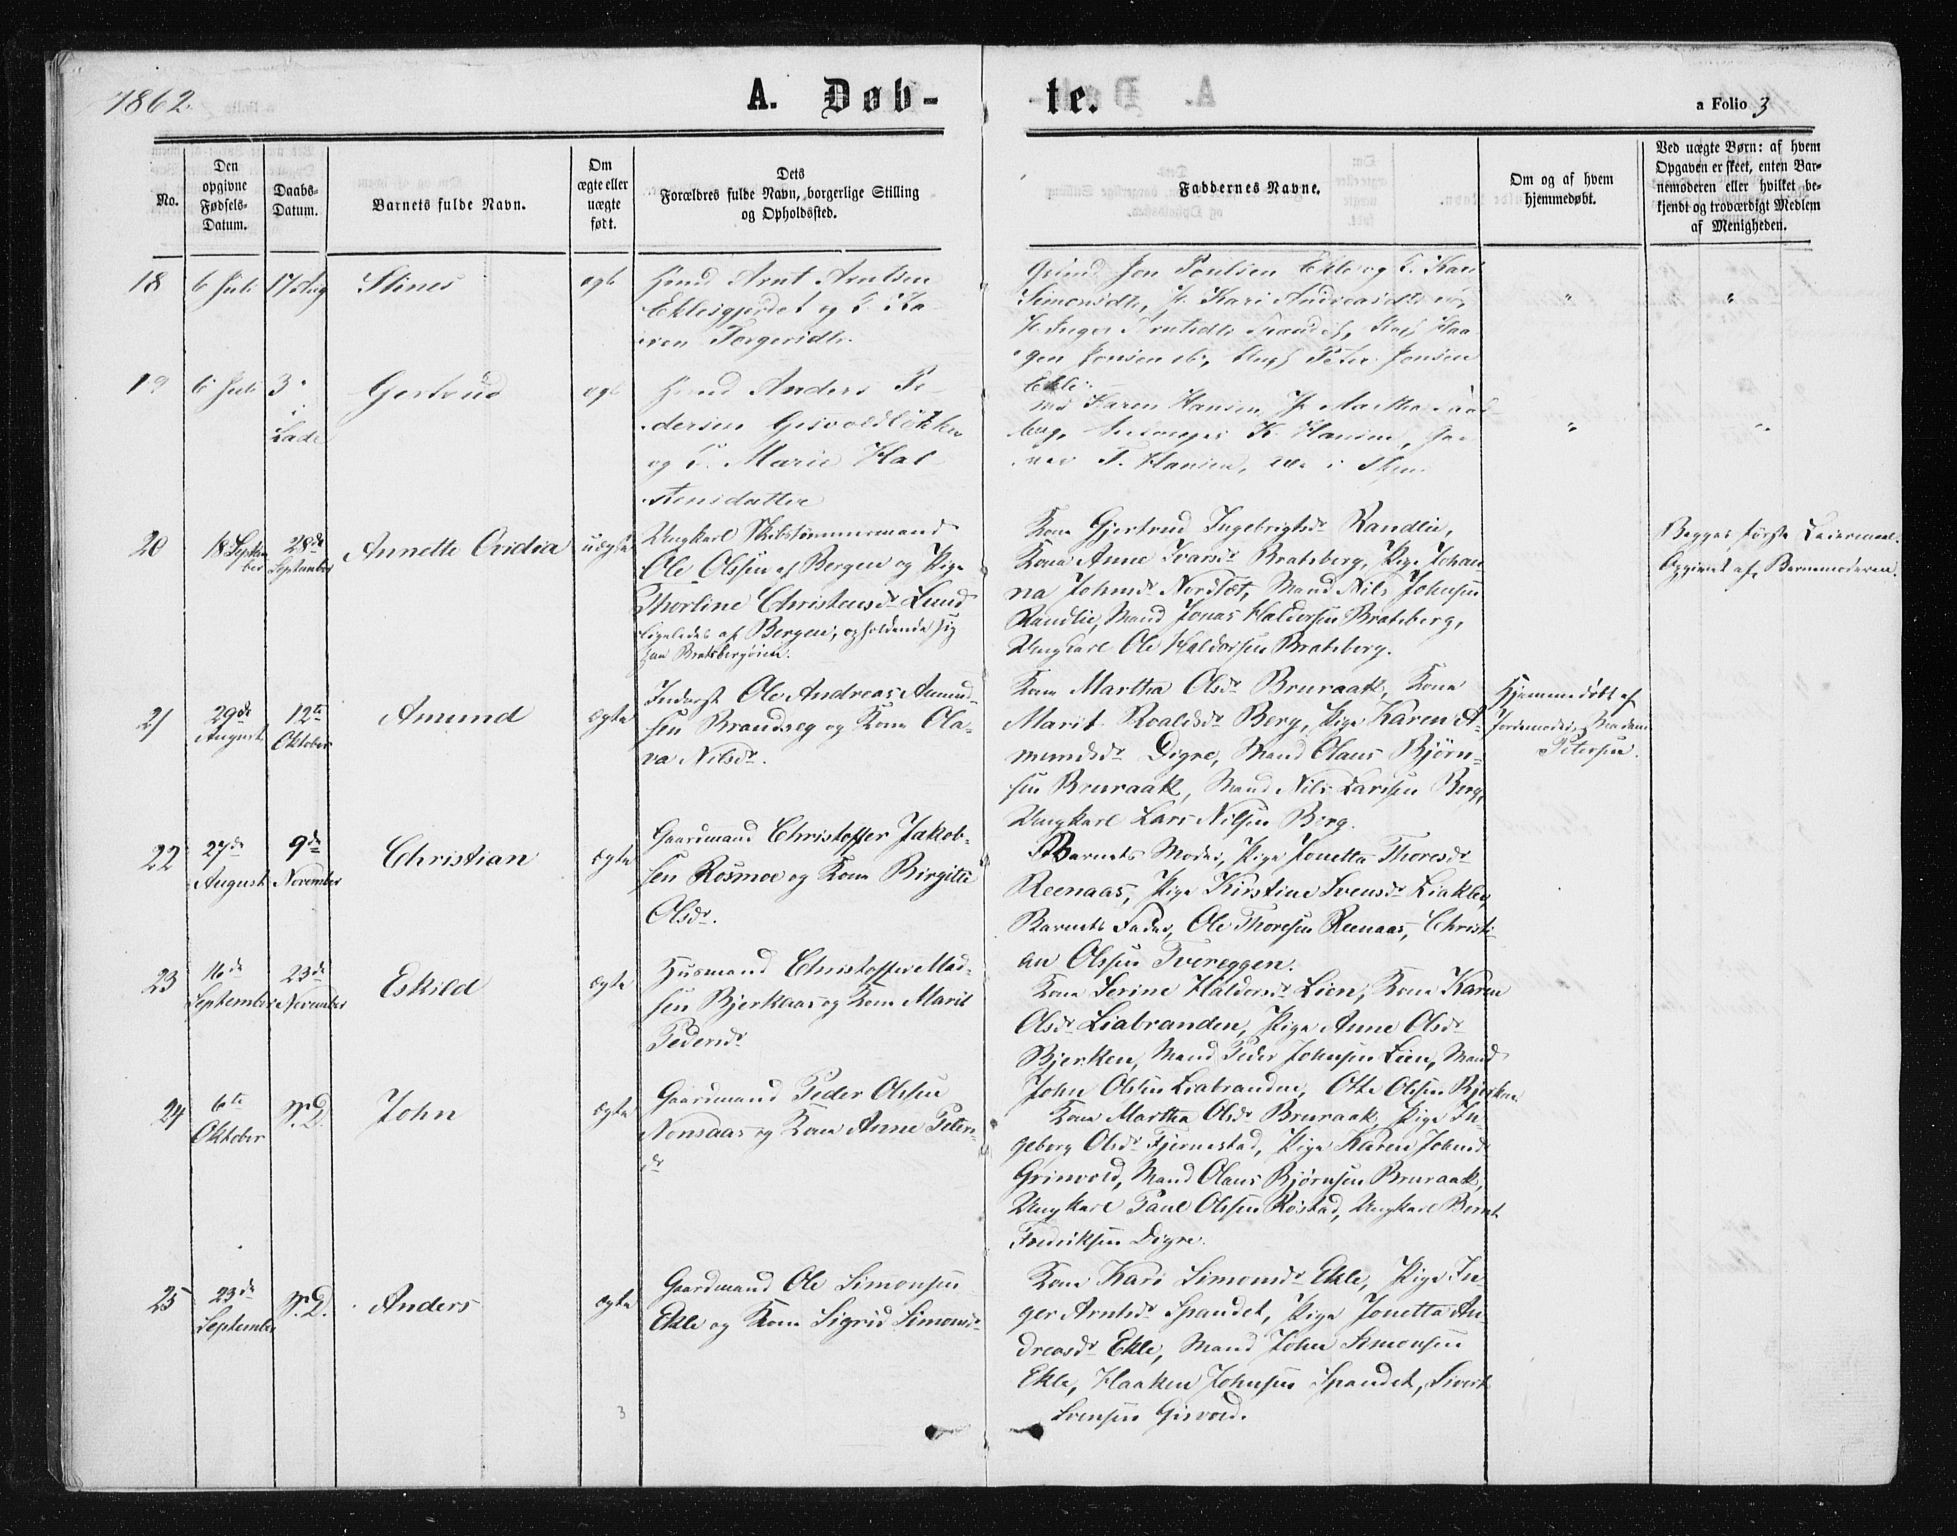 1862.
A. Døb-
te.
a Folio 3
No.
Den
opgivne
Fødsels-
Datum.
Daabs-
Datum.
Barnets fulde Navn.
Om
ægte eller
uægte
født.
Dets
Forældres fulde Navn, borgerlige Stilling
og Opholdssted.
Faddernes Navne.
Om og af hvem
hjemmedøbt.
Ved uægte Børn: af hvem
Opgaven er skeet, enten Bar-
nemoderen eller hvilket be-
kjendt og troværdigt Medlem
af Menigheden.
18
6 Juli
17 Aug
Stines
ægt
Arnt Arntsen
Eklesgjerdet og K. Ka-
ren Torgersdtr.
Jon Poulsen Ekle og K. Kari
Simonsdtr, P. Kari Andreasdtr
P. Inger Arntsdtr Spandet, Haa
gen Jonsen ib, Peter Jonsen
Ekle
"
"
19
6 Juli
3
i
Lade
Gertrud
ægt
Anders Pe-
dersen Gisvoldløkken
og K. Marie Hal-
stensdatter
Karen Hansen, P. Martha
berg, K. Hansen,
T. Hansen, alle i
"
"
20
18 Septem
ber
28de
September
Annette Ovidia
uægte
Ungkarl Skibstømmermand
Ole Olsen af Bergen og Pige
Thorline Christensdr Lund
ligeledes af Bergen, opholdende sig
paa Bratsbergøien.
Kone Gjertrud Ingebrigtsdr Randlie,
Kone Anne Ivarsdr Bratsberg, Pige Johan
na Johnsdr Nordset, Mand Nils Johnsen
Randlie, Mand Jonas Haldorsen Bratsberg,
Ungkarl Ole Haldorsen Bratsberg.
Begges første Leiermaal.
Opgivet af Barnemoderen.
21
29de
August
12te
Oktober
Amund
ægte
Inderst Ole Andreas Amund-
sen Brandseg og Kone Ola-
va Nilsdr.
Kone Martha Olsdr Bruraak, Kone
Marit Roaldsdr Berg, Pige Karen A-
mundsdr Digre, Mand Olaus Bjørn-
sen Bruraak, Mand Nils Larsen Berg,
Ungkarl Lars Nilsen Berg.
Hjemmedøbt af
Jordemoder Madam
Petersen.
22
27de
August
9de
November
Christian
ægte
Gaardmand Christoffer Jakob-
sen Rosmoe og Kone Birgitte
Olsdr.
Barnets Moder, Pige Jonetta Thoresdr
Reenaas, Pige Kirstine Svensdr Liaklev,
Barnets Fader, Ole Thoresen Reenaas, Christi-
an Olssen Tvereggen.
23
16de
September
23de
November
Eskild
ægte
Husmand Christoffer Mad-
sen Bjerkaas og Kone Marit
Pedersdr
Kone Serine Haldorsdr Lien, Kone Karen
Olsdr Liabranden, Pige Anne Olsdr
Bjerken, Mand Peder Johnsen Lien, Mand
John Olssen Liabranden, Otte Olssen Bjerken.
24
6te
Oktober
S. D.
John
ægte
Gaardmand Peder Olssen
Nonsaas og Kone Anne Peters-
dr
Kone Martha Olsdr Bruraak, Pige In-
geborg Olsdr Fjernestad, Pige Karen Johnsdr
Grinvold, Mand Olaus Bjørnsen Bruraak,
Ungkarl Paul Olssen Røstad, Ungkarl Bernt
Fredriksen Digre.
25
23de
September
S. D.
Anders
ægte
Gaardmand Ole Simonsen
Ekle og Kone Sigrid Simonsdr
Kone Kari Simonsdr Ekle, Pige In-
ger Arntsdr Spandet, Pige Jonetta An-
dreasdr Ekle, Mand John Simonsen
Ekle, Haaken Johnsen Spandet, Sivert
Svensen Gisvold.
3